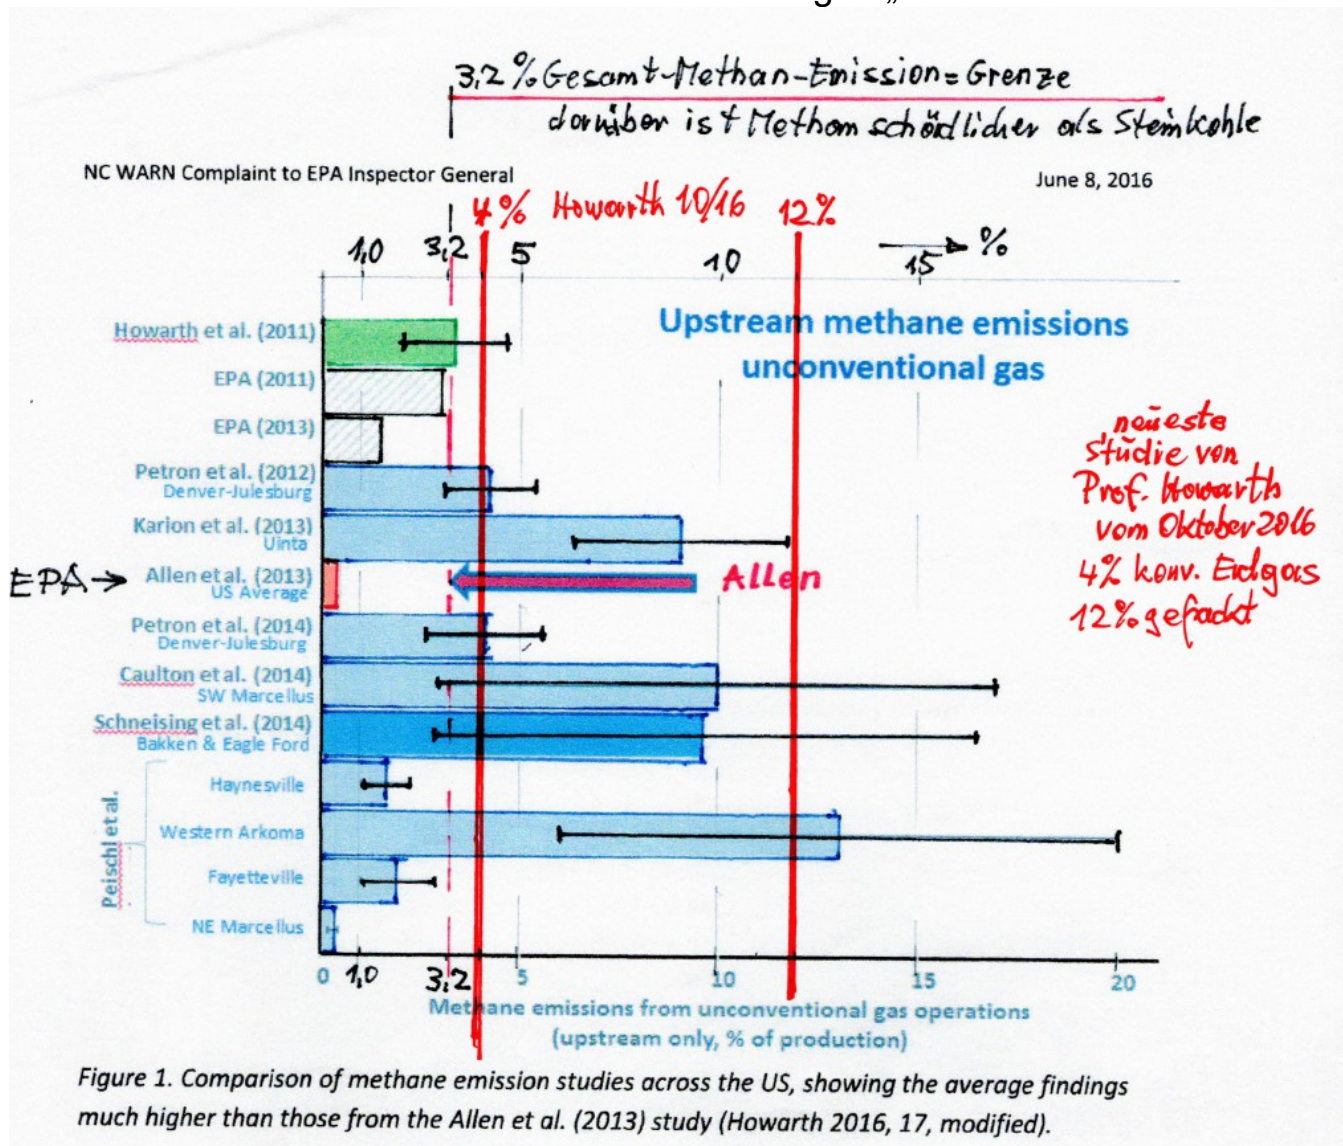 3,2% Gesamt-Methan-Emission = Grenze
darüber ist Methan schädlicher als Steinkohle
NC WARN Complaint to EPA Inspector General
June 8, 2016
4% Howarth 10/16 12%
1,0 3,2 5 10 15 → %
Upstream methane emissions
unconventional gas
Howarth et al. (2011)
EPA (2011)
EPA (2013)
Petron et al. (2012)
Denver-Julesburg
Karion et al. (2013)
Uinta
EPA → Allen et al. (2013) Allen
US Average
Petron et al. (2014)
Denver-Julesburg
Caulton et al. (2014)
SW Marcellus
Schneising et al. (2014)
Bakken & Eagle Ford
Peischl et al.
Haynesville
Western Arkoma
Fayetteville
NE Marcellus
neueste
Studie von
Prof. Howarth
vom Oktober 2016
4% konv. Erdgas
12% gefrackt
0 1,0 3,2 5 10 15 20
Methane emissions from unconventional gas operations
(upstream only, % of production)
Figure 1. Comparison of methane emission studies across the US, showing the average findings
much higher than those from the Allen et al. (2013) study (Howarth 2016, 17, modified).